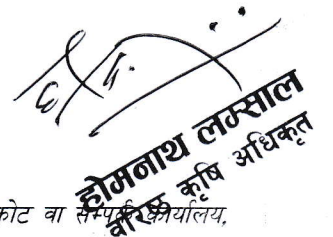 होमनाथ लम्साल
वरिष्ठ कृषि अधिकृत
कोट वा सम्पर्क कार्यालय,